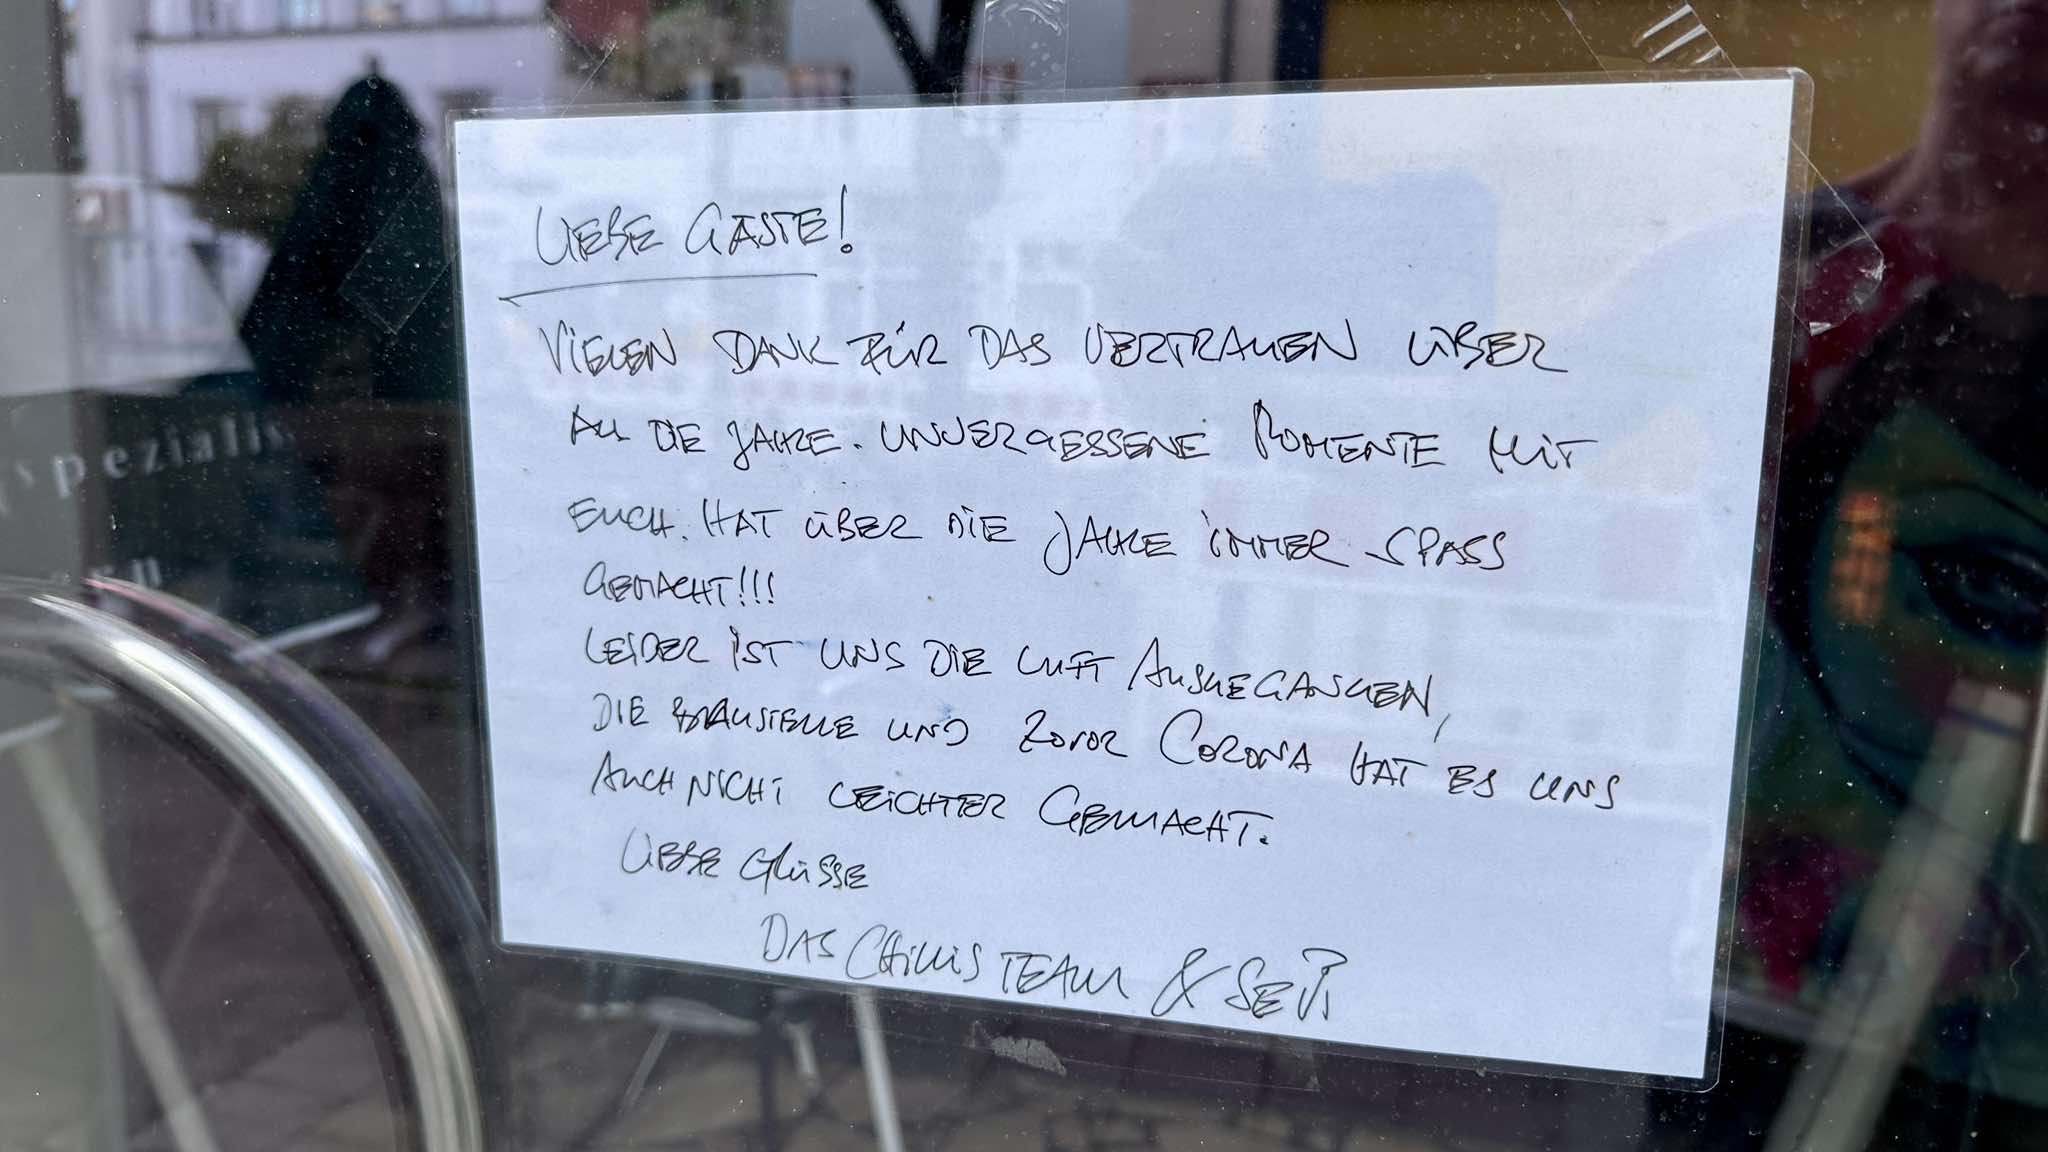 LIEBE GÄSTE!
VIELEN DANK FÜR DAS VERTRAUEN ÜBER
ALL DIE JAHRE. UNVERGESSENE MOMENTE MIT
EUCH. HAT ÜBER DIE JAHRE IMMER SPASS
GEMACHT!!!
LEIDER IST UNS DIE LUFT AUSGEGANGEN,
DIE BAUSTELLE UND ZUVOR CORONA HAT ES UNS
AUCH NICHT LEICHTER GEMACHT.
LIEBE GRÜSSE
DAS CHILLIS TEAM & SEVI
spezialis